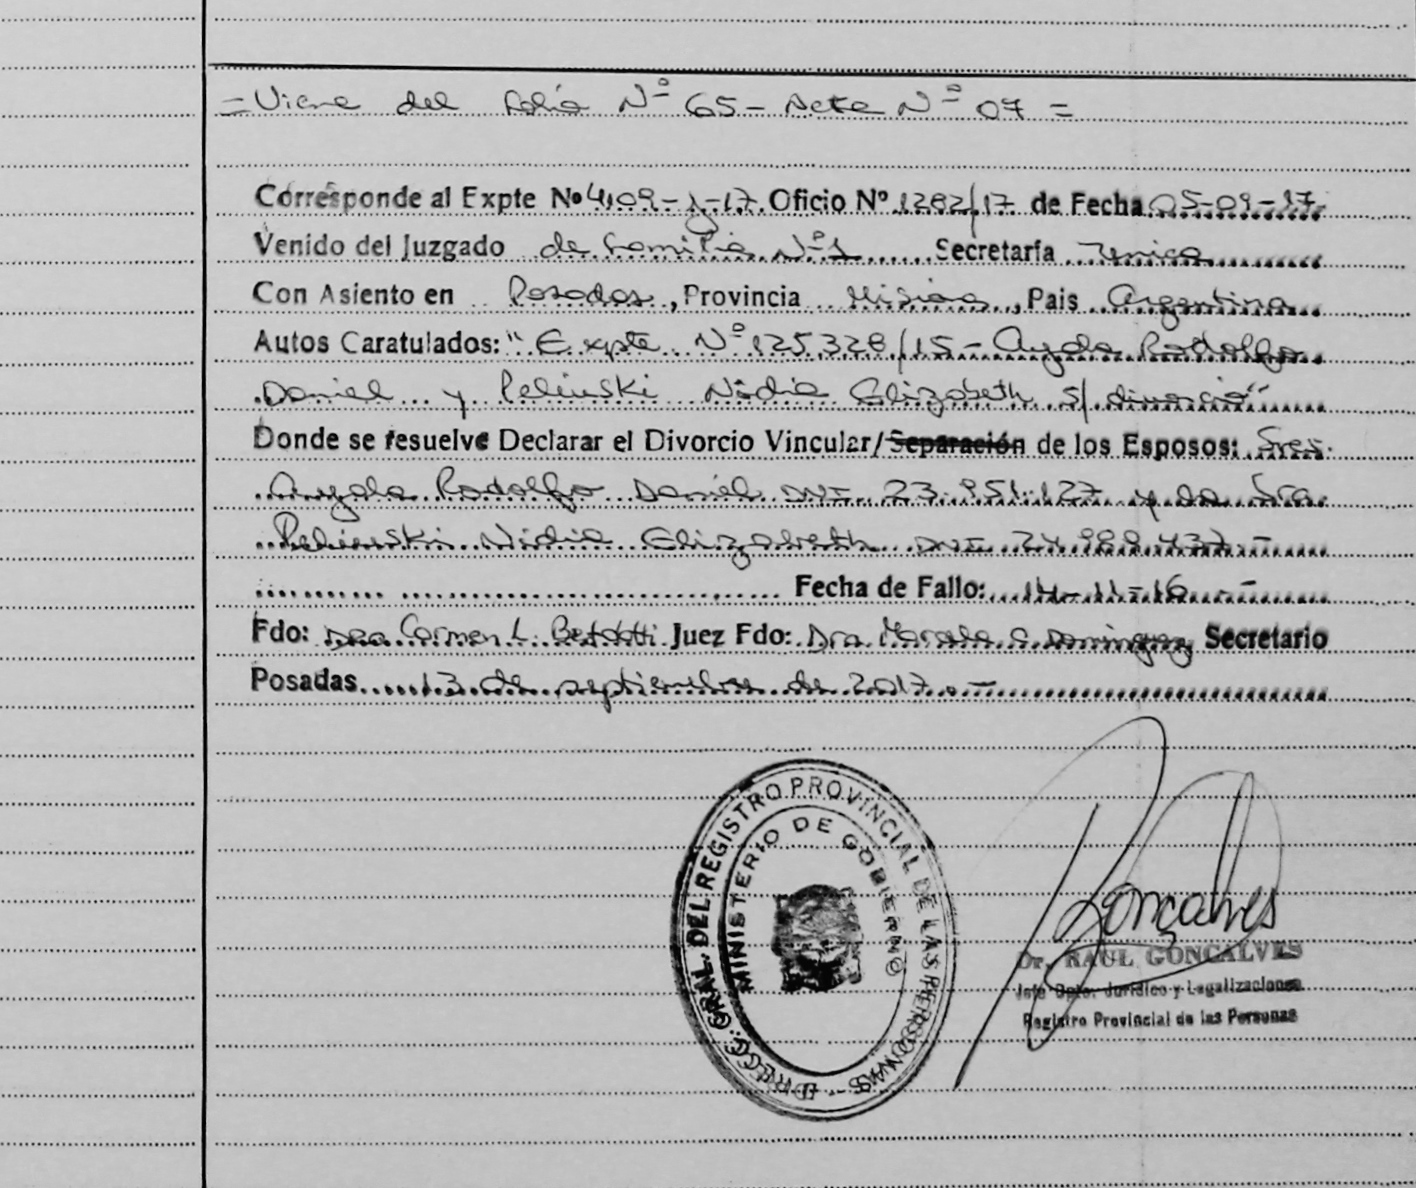 = Viene del folio Nº 65 - Acta Nº 07 =
Corresponde al Expte Nº 4109-J-17. Oficio Nº 1282/17 de Fecha 05-09-17.
Venido del Juzgado de Familia Nº1 Secretaría Unica
Con Asiento en Posadas, Provincia Misiones, Pais Argentina
Autos Caratulados: "Expte Nº 125.328/15 - Ayala Rodolfo
Daniel y Pelinski Nidia Elizabeth s/ divorcio"
Donde se resuelve Declarar el Divorcio Vincular/Separación de los Esposos: Sres.
Ayala Rodolfo Daniel DNI 23.951.127 y la Sra
Pelinski Nidia Elizabeth DNI 24.989.437 -
Fecha de Fallo: 14-11-16 -
Fdo: Dra Carmen L. Juez Fdo: Dra Dominguez Secretario
Posadas 13 de septiembre de 2017. -
DIRECC. GRAL. DEL REGISTRO PROVINCIAL DE LAS PERSONAS -
MINISTERIO DE GOBIERNO
Goncalves
Dr. RAUL GONCALVES
Jefe Dpto. Jurídico y Legalizaciones
Registro Provincial de las Personas